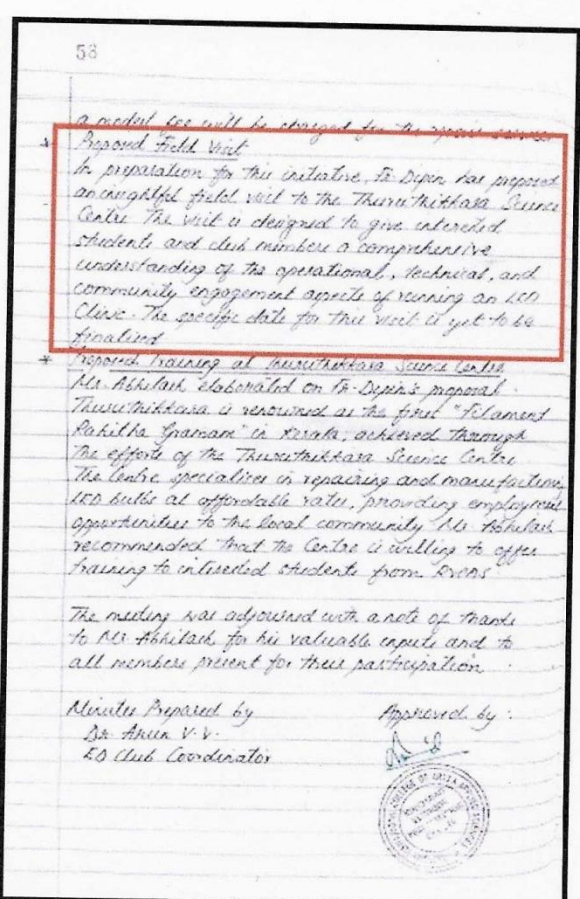 58
a modest fee will be charged for the repair services
* Proposed Field Visit
In preparation for this initiative, Fr. Dipin has proposed
an insightful field visit to the Thuruthikkara Science
Centre. The visit is designed to give interested
students and club members a comprehensive
understanding of the operational, technical, and
community engagement aspects of running an LED
Clinic. The specific date for this visit is yet to be
finalised
* Proposed Training at Thuruthikkara Science Centre
Mr. Abhilash elaborated on Fr. Dipin's proposal.
Thuruthikkara is renowned as the first "Filament
Rahitha Gramam" in Kerala, achieved through
the efforts of the Thuruthikkara Science Centre
The Centre specializes in repairing and manufacturing
LED bulbs at affordable rates, providing employment
opportunities to the local community. Mr. Abhilash
recommended that the Centre is willing to offer
training to interested students from
The meeting was adjourned with a note of thanks
to Mr. Abhilash for his valuable inputs and to
all members present for their participation.
Minutes Prepared by
Approved by :
Dr. Arun V. V.
ED Club Coordinator
COLLEGE OF SCIENCES